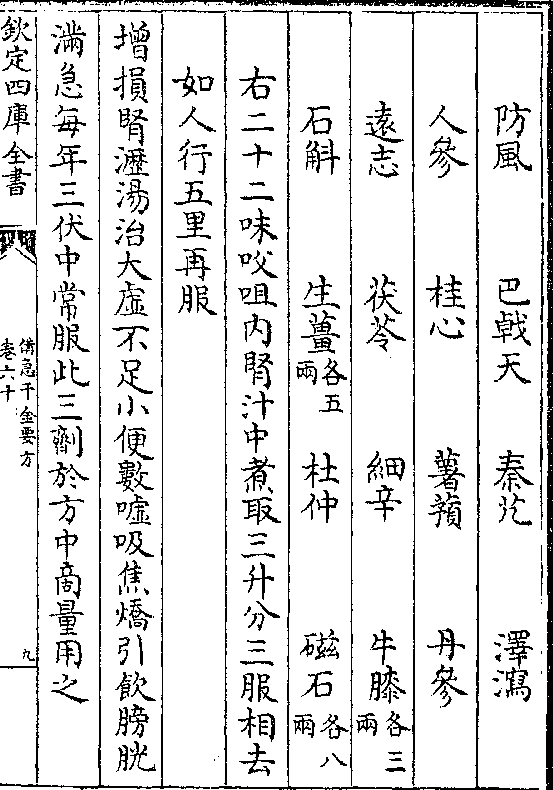 防風　巴戟天　秦艽　澤瀉
人參　桂心　薯蕷　丹參
遠志　茯苓　細辛　牛膝各三兩
石斛　生薑各五兩　杜仲　磁石各八兩
右二十二味㕮咀内腎汁中煮取三升分三服相去
如人行五里再服
增損腎瀝湯治大虛不足小便數噓吸焦燆引飲膀胱
滿急每年三伏中常服此三劑於方中商量用之
欽定四庫全書
備急千金要方
卷六十
九